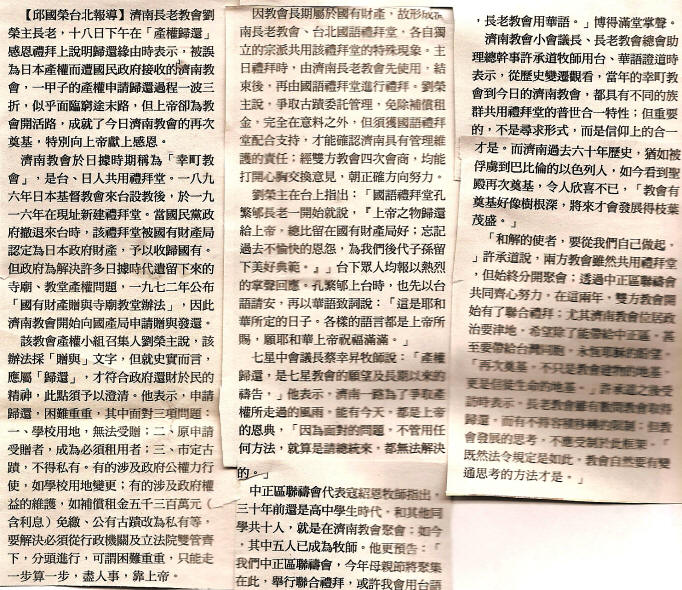 【邱國榮台北報導】濟南長老教會劉
榮主長老，十八日下午在「產權歸還」
感恩禮拜上說明歸還緣由時表示，被誤
為日本產權而遭國民政府接收的濟南教
會，一甲子的產權申請歸還過程一波三
折，似乎面臨窮途末路，但上帝卻為教
會開活路，成就了今日濟南教會的再次
奠基，特別向上帝獻上感恩。
濟南教會於日據時期稱為「幸町教
會」，是台、日人共用禮拜堂。一八九
六年日本基督教會來台設教後，於一九
一六年在現址新建禮拜堂。當國民黨政
府撤退來台時，該禮拜堂被國有財產局
認定為日本政府財產，予以收歸國有。
但政府為解決許多日據時代遺留下來的
寺廟、教堂產權問題，一九七二年公布
「國有財產贈與寺廟教堂辦法」，因此
濟南教會開始向國產局申請贈與發還。
該教會產權小組召集人劉榮主說，該
辦法採「贈與」文字，但就史實而言，
應屬「歸還」，才符合政府還財於民的
精神，此點須予以澄清。他表示，申請
歸還，困難重重，其中面對三項問題：
一、學校用地，無法受贈；二、原申請
受贈者，成為必須租用者；三、市定古
蹟，不得私有。有的涉及政府公權力行
使，如學校用地變更；有的涉及政府權
益的維護，如補償租金五千三百萬元（
含利息）免繳、公有古蹟改為私有等，
要解決必須從行政機關及立法院雙管齊
下，分頭進行，可謂困難重重，只能走
一步算一步，盡人事，靠上帝。
因教會長期屬於國有財產，故形成濟
南長老教會、台北國語禮拜堂，各自獨
立的宗派共用該禮拜堂的特殊現象。主
日禮拜時，由濟南長老教會先使用，結
束後，再由國語禮拜堂進行禮拜。劉榮
主說，爭取古蹟委託管理，免除補償租
金，完全在意料之外，但須獲國語禮拜
堂配合支持，才能確認濟南具有管理維
護的責任；經雙方教會四次會商，均能
打開心胸交換意見，朝正確方向努力。
劉榮主在台上指出：「國語禮拜堂孔
繁郇長老一開始就說，『上帝之物歸還
給上帝，總比留在國有財產局好；忘記
過去不愉快的恩怨，為我們後代子孫留
下美好典範。』」台下眾人均報以熱烈
的掌聲回應。孔繁郇上台時，也先以台
語請安，再以華語致詞說：「這是耶和
華所定的日子。各樣的語言都是上帝所
賜，願耶和華上帝祝福滿滿。」
七星中會議長蔡幸昇牧師說：「產權
歸還，是七星教會的願望及長期以來的
禱告，」他表示，濟南一路為了爭取產
權所走過的風雨，能有今天，都是上帝
的恩典，「因為面對的問題，不管用任
何方法，就算是請總統來，都無法解決
的。」
中正區聯禱會代表寇紹恩牧師指出，
三十年前還是高中學生時代，和其他同
學共十人，就是在濟南教會聚會；如今
，其中五人已成為牧師。他更預告：「
我們中正區聯禱會，今年母親節將聚集
在此，舉行聯合禮拜，或許我會用台語
，長老教會用華語。」博得滿堂掌聲。
濟南教會小會議長、長老教會總會助
理總幹事許承道牧師用台、華語證道時
表示，從歷史變遷觀看，當年的幸町教
會到今日的濟南教會，都具有不同的族
群共用禮拜堂的普世合一特性；但重要
的，不是尋求形式，而是信仰上的合一
才是。而濟南過去六十年歷史，猶如被
俘虜到巴比倫的以色列人，如今看到聖
殿再次奠基，令人欣喜不已，「教會有
奠基好像樹根深，將來才會發展得枝葉
茂盛。」
「和解的使者，要從我們自己做起。
」許承道說，兩方教會雖然共用禮拜堂
，但始終分開聚會；透過中正區聯禱會
共同齊心努力，在這兩年，雙方教會開
始有了聯合禮拜；尤其濟南教會位居政
治要津地，希望除了能帶給中正區，甚
至要帶給台灣同胞，永恆耶穌的盼望。
「再次奠基，不只是教會建物的地基，
更是信徒生命的地基。」許承道之後受
訪時表示，長老教會雖有數間教會取得
歸還，而有不得容積移轉的限制；但教
會發展的思考，不應受制於此框架。「
既然法令規定是如此，教會自然要有變
通思考的方法才是。」